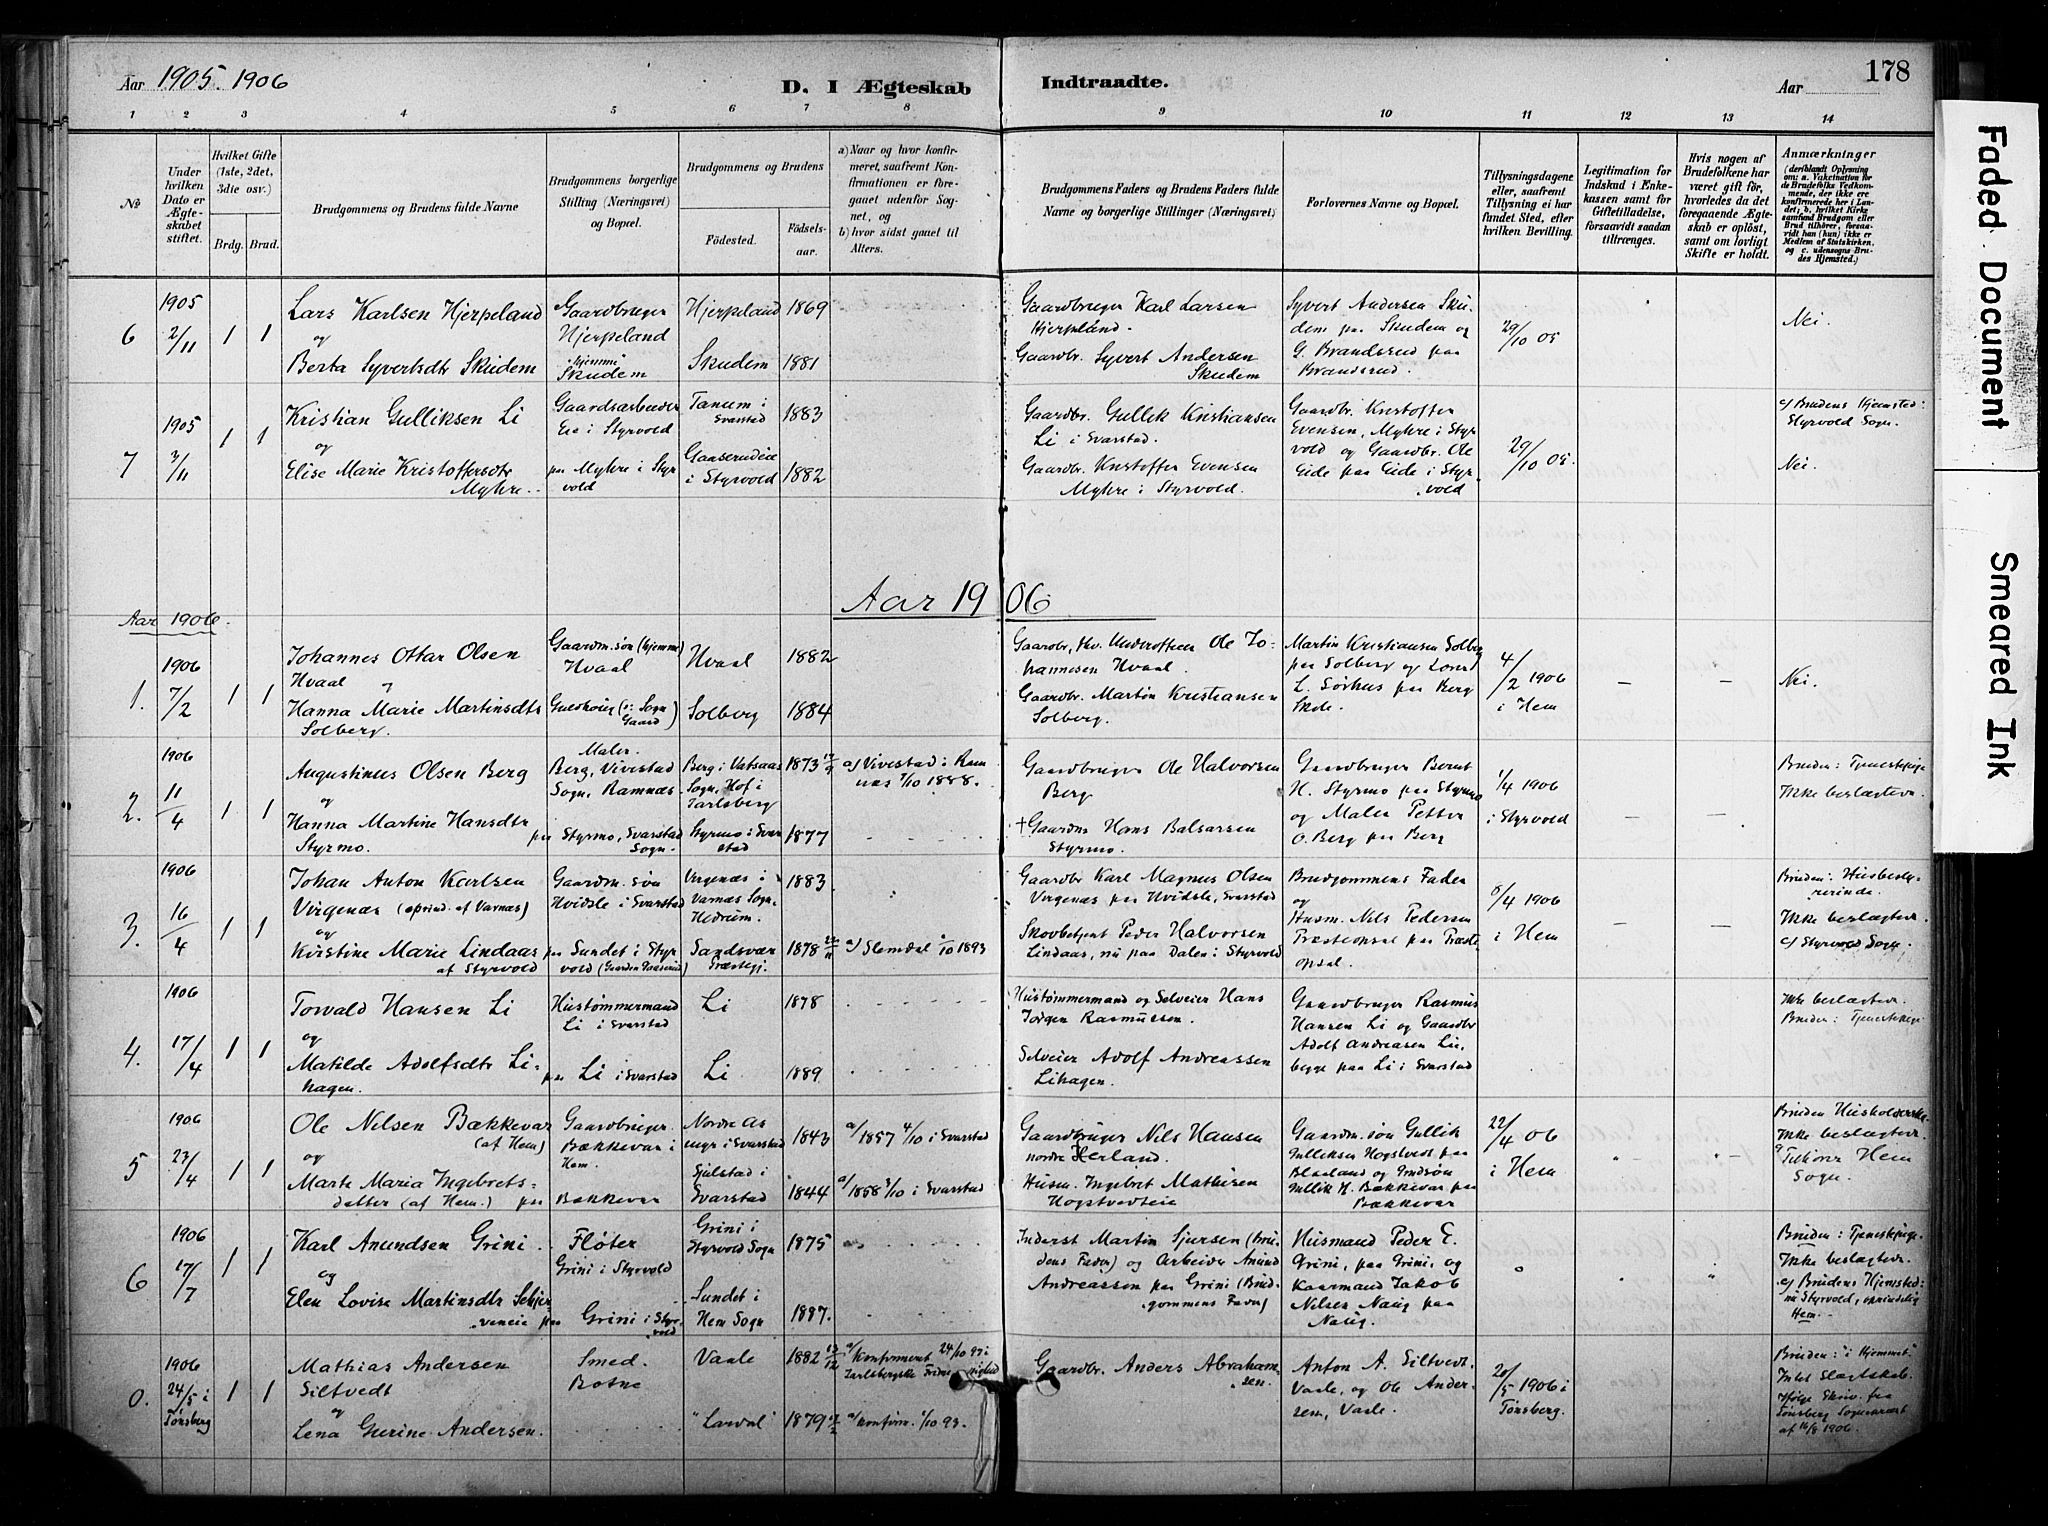 Aar 1905. 1906
D. I Ægteskab Indtraadte.
Aar
178
1 2 3 4 5 6 7 8 9 10 11 12 13 14
No
Under hvilken Dato er Ægteskabet stiftet.
Hvilket Gifte (1ste, 2det, 3die osv.)
Brdg. Brud.
Brudgommens og Brudens fulde Navne
Brudgommens borgerlige Stilling (Næringsvei) og Bopæl.
Brudgommens og Brudens
Födested.
Födselsaar.
a) Naar og hvor konfirmeret, saafremt Konfirmationen er foregaaet udenför Sognet, og
b) hvor sidst gaaet til Alters.
Brudgommens Faders og Brudens Faders fulde Navne og borgerlige Stillinger (Næringsvei)
Forlovernes Navne og Bopæl.
Tillysningsdagene eller, saafremt Tillysning ei har fundet Sted, efter hvilken Bevilling.
Legitimation for Indskud i Enkekassen samt for Giftetilladelse, forsaavidt saadan tiltrænges.
Hvis nogen af Brudefolkene har været gift för, hvorledes da det foregaaende Ægteskab er oplöst, samt om lovligt Skifte er holdt.
Anmærkninger
(deriblandt Oplysning om: a. Vakcination för de Brudefolks Vedkommende, der ikke ere konfirmerede her i Landet; b. hvilket Kirkesamfund Brudgom eller Brud tilhörer, forsaavidt han (hun) ikke er Medlem af Statskirken, og c. udensogns Brudes Hjemsted.)
6
1905
2/11
1 1
Lars Karlsen Hjerpeland
og
Berta Syvertsdtr Skudem
Gaardbruger
Hjerpeland
hjemme
Skudem
Hjerpeland 1869
Skudem 1881
Gaardbruger Karl Larsen
Hjerpland.
Gaardbr. Syvert Andersen
Skudem
Syvert Andersen Sku-
dem paa Skudem og
G. Brandsrud paa
Brandsrud.
29/10 05
Nei.
7
1905
3/11
1 1
Kristian Gulliksen Li
og
Elise Marie Kristoffersdtr
Myhre.
Gaardsarbeider
Eie i Styrvold
paa Myhre i Styr
vold
Tanum i
Svarstad
1883
Gaaserudeie
i Styrvold
1882
Gaardbr. Gullik Kristiansen
Li i Svarstad.
Gaardbr. Kristoffer Evensen
Myhre i Styrvold.
Gaardbr. Kristoffer
Evensen, Myhre i Styr
vold og Gaardbr. Ole
Eide paa Eide i Styr
vold
29/10 05.
c/ Brudens Hjemsted:
Styrvold Sogn.
Nei.
Aar 1906
Aar 1906.
1.
1906
7/2
1 1
Johannes Ottar Olsen
Hvaal
og
Hanna Marie Martinsdtr
Solberg.
Gaardm. søn (hjemme)
Hvaal
Sogn
Gaard
Hvaal 1882
Solberg 1884
Gaardbr, fhv. Underofficer Ole Jo-
hannesen Hvaal.
Gaardbr. Martin Kristiansen
Solberg.
Martin Kristiansen Solberg
paa Solberg og
L. Sørhus paa Berg
Skole.
4/2 1906
i Hem
Nei.
2.
1906
11/4
1 1
Augustinus Olsen Berg
og
Hanna Martine Hansdtr
Styrmo.
Maler
Berg, Vivestad
Sogn, Ramnæs
paa Styrmo, Svarstad
Sogn.
Berg i Vatsaas
Sogn, Hof i
Jarlsberg
1873 17/9
Styrmo i Svar
stad
1877
a/ Vivestad i Ram
næs 7/10 1888.
Gaardbruger Ole Halvorsen
Berg
+ Gaardm Hans Balsarsen
Styrmo.
Gaardbruger Bernt
H. Styrmo paa Styrmo
og Maler Petter
O. Berg paa Berg
1/4 1906
i Styrvold
Bruden: Tjenestepige
Ikke beslægtede.
3.
1906
16/4
1 1
Johan Anton Karlsen
Virgenæs (oprind. af Varnæs)
og
Kirstine Marie Lindaas
af Styrvold
Gaardm. søn
Hvidsle i Svarstad
paa Sundet i Styr
vold (Gaarden Gaaserud)
Virgenæs i
Varnæs Sogn,
Hedrum.
1883
Sandsvær
Præstegj.
1878
a/ Slemdal 1/10 1893
Gaardbr Karl Magnus Olsen
Virgenæs paa Hvidsle, Svarstad
Skovbetjent Peder Halvorsen
Lindaas, nu paa Dalen i Styrvold
Brudgommens Fader
og
Husm. Nils Pedersen
Præsteopsal paa Præste
opsal.
8/4 1906
i Hem
Bruden: Husbesty-
rerinde.
Ikke beslægtede.
c/ Styrvold Sogn.
4.
1906
17/4
1 1
Torvald Hansen Li
og
Matilde Adolfsdtr Li-
hagen.
Hustømmermand
Li i Svarstad
paa Li i Svarstad
Li 1878
Li 1889
Hustømmermand og Selveier Hans
Jørgen Rasmussen.
Selveier Adolf Andreassen
Lihagen.
Gaardbruger Rasmus
Hansen Li og Gaardbr
Adolf Andreasen Li,
begge paa Li i Svarstad
Ikke beslægtede.
Bruden: Tjenestepige
5
1906
23/4
1 1
Ole Nilsen Bækkevar
(af Hem)
og
Marte Maria Ingebrets-
datter (af Hem.)
Gaardbruger
Bækkevar i
Hem.
paa Bækkevar
Nordre As
myr i Svarstad
1843
Gjulstad i
Svarstad
1844
a/ 1857 4/10 i Svarstad
a/ 1858 3/10 i Svarstad
Gaardbruger Nils Hansen
nordre Herland.
Husm. Ingebret Mathisen
Hogstvedteie
Gaardm. søn Gullik
Gulliksen Hogstvedt paa
Blaaland og Gaardsøn
Gullik H. Bækkevar paa
Bækkevar
22/4 06
i Hem
Bruden Husholderske
Ikke beslægtede.
Tilhører Hem
Sogn.
6
1906
17/7
1 1
Karl Amundsen Grini
og
Elen Lovise Martinsdtr Skjer-
veneie
Fløter
Grini i Styrvold
paa Grini i Styr
vold
Grini i
Styrvold Sogn
1875
Sundet i
Hem Sogn
1887.
Inderst Martin Sjursen (Bru-
dens Fader) og Arbeider Amund
Andreassen paa Grini (Brud-
gommens Fader)
Husmand Peder E.
Grini, paa Grini, og
Kaarmand Jakob
Nilsen Nasig paa
Nasig.
Bruden: Tjenestepige.
Ikke beslægtede.
c/ Brudens Hjemsted:
nu Styrvold, oprindelig
Hem.
0.
1906
24/5 i
Tønsberg
1 1
Mathias Andersen
Siltvedt
og
Lena Gurine Andersen.
Smed.
Botne
Vaale 1882 13/12
"Larvik" 1879 17/2
a/ Konfirmeret 24/10 97 i
Jarlsbergske
a/ Konfirm. 1/10 93.
Gaardbr. Anders Abraham-
sen.
Anton A. Siltvedt
Vaale, og Ole Ander-
sen, Vaale.
20/5 1906 i
Tønsberg.
Bruden: "i Hjemmet"
Intet Slægtskab.
Ifølge Skriv. fra
Tønsberg Sognepræst
af 16/8 1906.
Faded Document
Smeared Ink